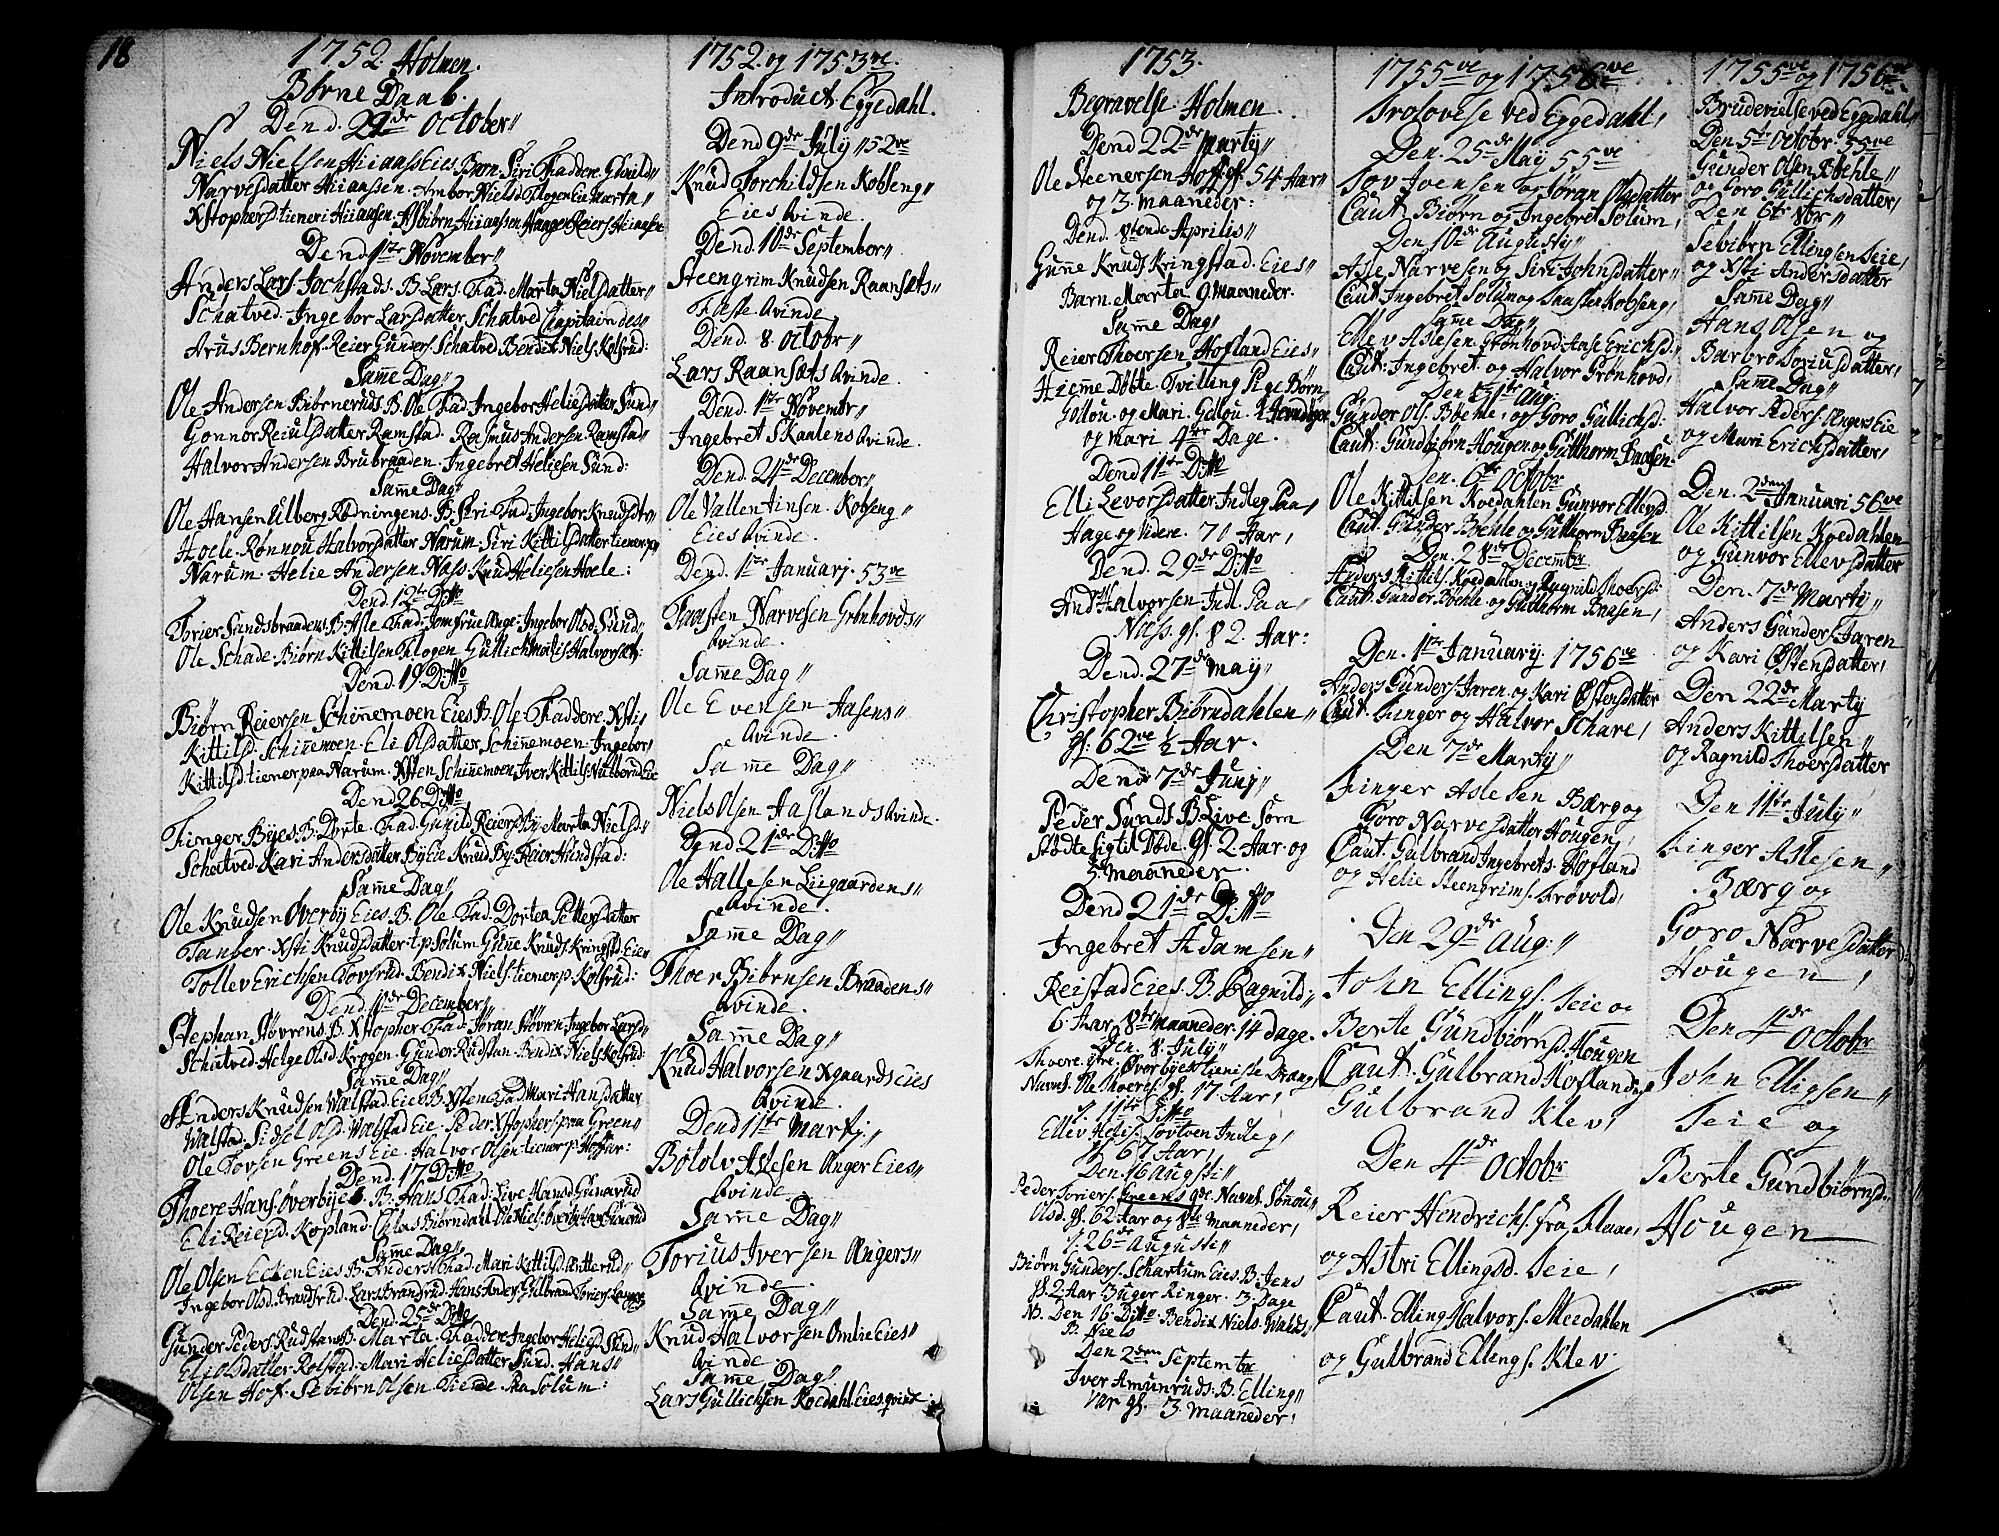 18
1752. Holmen.
Börne Daab.
Dend. 29de October
Niels Nielsen Hiiaas Eies Barn. Siri. Faddere. Gunild
Narvesdatter Hiiaasen. Ambor Nielsd. Flogen Eie Marta
Xstophersd. tieneri Hiiaasen. Asbiörn Hiiaasen Haagen Reiers Hiiaasen
Dend 1ste November
Anders Lars. Jochstads. B. Lars. Fad. Marta Nielsdatter
Schatved. Ingebor Larsdatter Schatved Capitain des
Arus Bernhof. Reier Gunders. Schatved Bendix Niels. Kolsrud:
Same Dag
Ole Andersen Biörneruds B. Ole Fad Ingebor Heliesdatter Sund
Gonnor Reiulsdatter Ramstad. Rasmus Andersen Ramstad
Halvor Andersen Brubraaden. Ingebret Heliesen Sund:
Same Dag
Ole Hansen Ulberg Rødningens. B. Siri. Fad. Ingebor Knudsdtr
Hoele. Rønnou Halvorsdatter Narum. Siri Kittilsdatter tiener paa
Narum. Helie Andersen Nass Knud Heliesen Hoele:
Dend. 12te Ditto
Torier Sandsbraadens B. Asle. Fad. Jomfrue Ange. Ingebor Olsd Sund
Ole Schade. Biörn Kittilsen Flogen Gullich Halvors.
Dend. 19 Ditto
Biörn Reiersen Schinnemoen Eies B. Ole. Faddere. Xsti
Kittilsd. Schinnemoen. Eli Olsdatter Schinnemoen. Ingebor
Kittilsd tiener paa Narum. Xsten Schinnemoen Iver Kittils.
Dend 26 Ditto
Finger Byes B. Dorte. Fad. Gunild Reiersd By. Marta Nielsd
Schatved. Kari Andersdatter By Eie Knud By. Reier Hindstad:
Same Dag
Ole Knudsen Overby Eies. B. Ole. Fad. Dortea Pettersdatter
Tanber. Xsti Knudsdatter. t.p. Solum Gune Knuds. Kringstd. Eie
Tollev Erichsen Tovsrud. Bendix Niels. tiener p. Kolsrud:
Dend. 10de December
Stephan Støvrens. B. Xstopher Fad. Jøran Støvren. Ingebor Larsd
Schatved. Helge Olsd. Krogen. Gunder Rudstan. Bendix Niels Kolsrud:
Same Dag
Anders Knudsen Walstad. Eies B. Xsten Fad Mari Hansdatter
Walstad. Sidsel Olsd. Walstad Eie. Peder Xstophers. paa Green
Ole Tovsen Greens Eie. Halvor Olsen. tiener p. Hofftar:
Dend. 17 Ditto
Thore Hans. Øverbyes. B. Hans Fad. Live Hansd Gunerud
Eli Reiersd. Kopland. Niels. Øverby Hans Gunerud
Same Dag
Ole Olsen Ecken Eies B. Anders Fad. Mari Kittilsd. Anterud
Ingebor Olsd. Strandsrud. Lars Strandsrud. Hans Anders. Gulbrand Toriers.
Dend. 25de Ditto
Gunder Peders. Rudstan B. Marta. Faddere Ingebor Heliesd Sund
Eli Olsdatter Rolstad. Mari Heliesdatter Sund. Hans
Olsen Hoff. Sebiörn Olsen tiende. Paa Solum:
1752. og 1753ve
Introduct. Eggedahl.
Dend 9de July 52ve
Knud Torchildsen Kobseng
Eies Qvinde.
Dend. 10de September
Steengrim Knudsen Raansæts
Faste Qvinde.
Dend. 8 Octobr
Lars Raansæts Qvinde.
Dend. 1ste Novembr
Ingebret Skaalens Qvinde.
Dend. 24de December
Ole Vallentinsen. Kobseng
Eies Qvinde.
Dend. 1ste Januarj. 53ve
Taasten Narvesen Grönhovds
Qvinde.
Same Dag
Ole Evensen Aasens
Qvinde.
Same Dag
Niels Olsen Haslands Qvinde.
Dend 21de Ditto
Ole Hallesen Liigaardens
Qvinde.
Same Dag
Thoer Biörnsen Braadens
Qvinde.
Same Dag
Knud Halvorsen Xgaards Eies
Qvinde.
Dend 11te Martj.
Bölolv Aslesen Anger Eies
Qvinde.
Same Dag
Torius Iversen Angers
Qvinde.
Same Dag
Knud Halvorsen Omlie Eies
Qvinde
Same Dag
Lars Gullichsen Koedahl. Eies qvinde
1753.
Begravelse Holmen.
Dend 22de Marty
Ole Steenersen Hoff. gl. 54 Aar
og 3. maaneder:
Dend. 8tende Aprilis
Gunne Knuds. Kringstad. Eies
Barn. Marta 9 Maaneder.
Same Dag
Reier Thoersen Hofland Eies
Hieme Döbte. Tvilling Pige Børn
Gollou. og Mari. Gollou.
og mari 4re Dage.
Dend 11te Ditto
Elli Levorsdatter. Indleg Paa
Hage og videre. 70 Aar
Dend. 29de Ditto
And: Halvorsen Indl. Paa
Nass. gl. 82. Aar:
Dend. 27de may
Christopher Biörndahlen
gl. 62ve ½ Aar.
Dend 7de Junj
Peder Sunds B. Live som
Stödte sigtil Döde. gl. 2. Aar og
3. maaneder.
Dend 21de Ditto
Ingebret Adamsen
Reistad Eies. B. Ragnild
6. Aar 8te maaneder. 14 dage.
Den. 8. July
Thoere. Øverbyes tieniste Drang
Navnl. Ole Thoeres. gl. 17. Aar
d. 11te Ditto
Ellev Helis. Tovtven Indleg
gl. 67 Aar
Den. 16 Augsti
Peder Toriers. Greens qde. Navnl. Sönou
Olsd. gl. 62 Aar og 8te maaneder
d. 26de Augusti
Biörn Gunders. Schartum Eies. B. Jens
gl. 2 Aar 3 uger Ringer. 3. Dage
N. Den 16 Ditto. Bendix Niels. Walds
B. Niels
Den 2den Septembr
Iver Amunruds. B. Elling
var gl. 3. maaneder
1755ve og 1756ve
Trolovelse ved Eggedahl
Den. 25de May 55ve
Tov Joensen og Jöran Olsdatter
Caut. Biörn og Ingebret Solum
Den 10de Augusty
Asle Narvesen og Siri Johnsdatter
Caut. Ingebret Solum og Taasten Kobseng
Same Dag
Ellev Aslesen. Grönhovd Aase Erichsd.
Caut. Ingebret og Halvor Grönhovd
Den 31te Aug.
Gunder Ols. Böehle og Goro Gullichsd:
Caut: Gundbiörn Hougen og Gutthorm Baasen
Den. 6te Octobr
Ole Kittilsen Koedahlen Gunvor Ellevsd
Caut. Gunder Böehle og Gutthorm Baasen
Den. 28de Decembr
Anders Kittils. Koedahlen og Ragnild Thoersd:
Caut. Gunder Böehle. og Gutthorm Baasen
Den. 1ste January. 1756ve
Anders Gunders. Jaren. og Kari Østensdatter
Caut. Finger og Halvor Schare
Den 7de Marty
Finger Aslesen Bærg og
Goro Narvesdatter Hougen
Caut. Gulbrand Ingebrets. Hofland
og Helie Steengrims. Frøvold
Den 29de Aug:
John Ellings. Teie og
Berte Gundbiörnsd. Hougen
Caut. Gulbrand Hofland og
Gulbrand Klev
Den 4de Octobr
Reier Hendrichs. fra
og Astri Ellingsd. Teie
Caut. Elling Halvors. Meedahlen
og Gulbrand Ellings. Klev
1755ve og 1756ve
Brudevielse ved Eggedahl
Den 5te Octobr. 55ve
Gunder Olsen Böehle
og Goro Gullichsdatter
Den 6te 8br
Sebiörn Ellingsen Teie
og Xsti Andersdatter
Same Dag
Hans Olsen og
Barbro Toriusdatter
Same Dag
Halvor Peders. Angers Eie
og Mari Erichsdatter
Den. 2den Januari 56ve
Ole Kittilsen Koedahlen
og Gunvor Ellevsdatter
Den. 7de Marty
Anders Gunders Jaren
og Kari Østensdatter
Den 22de Marty
Anders Kittilsen
og Ragnild Thoersdatter
Den 11te July
Finger Aslesen
Bærg og
Goro Narvesdatter
Hougen
Den 4de Octobr
John Elligsen
Teie og
Berte Gundbiörnsd.
Hougen